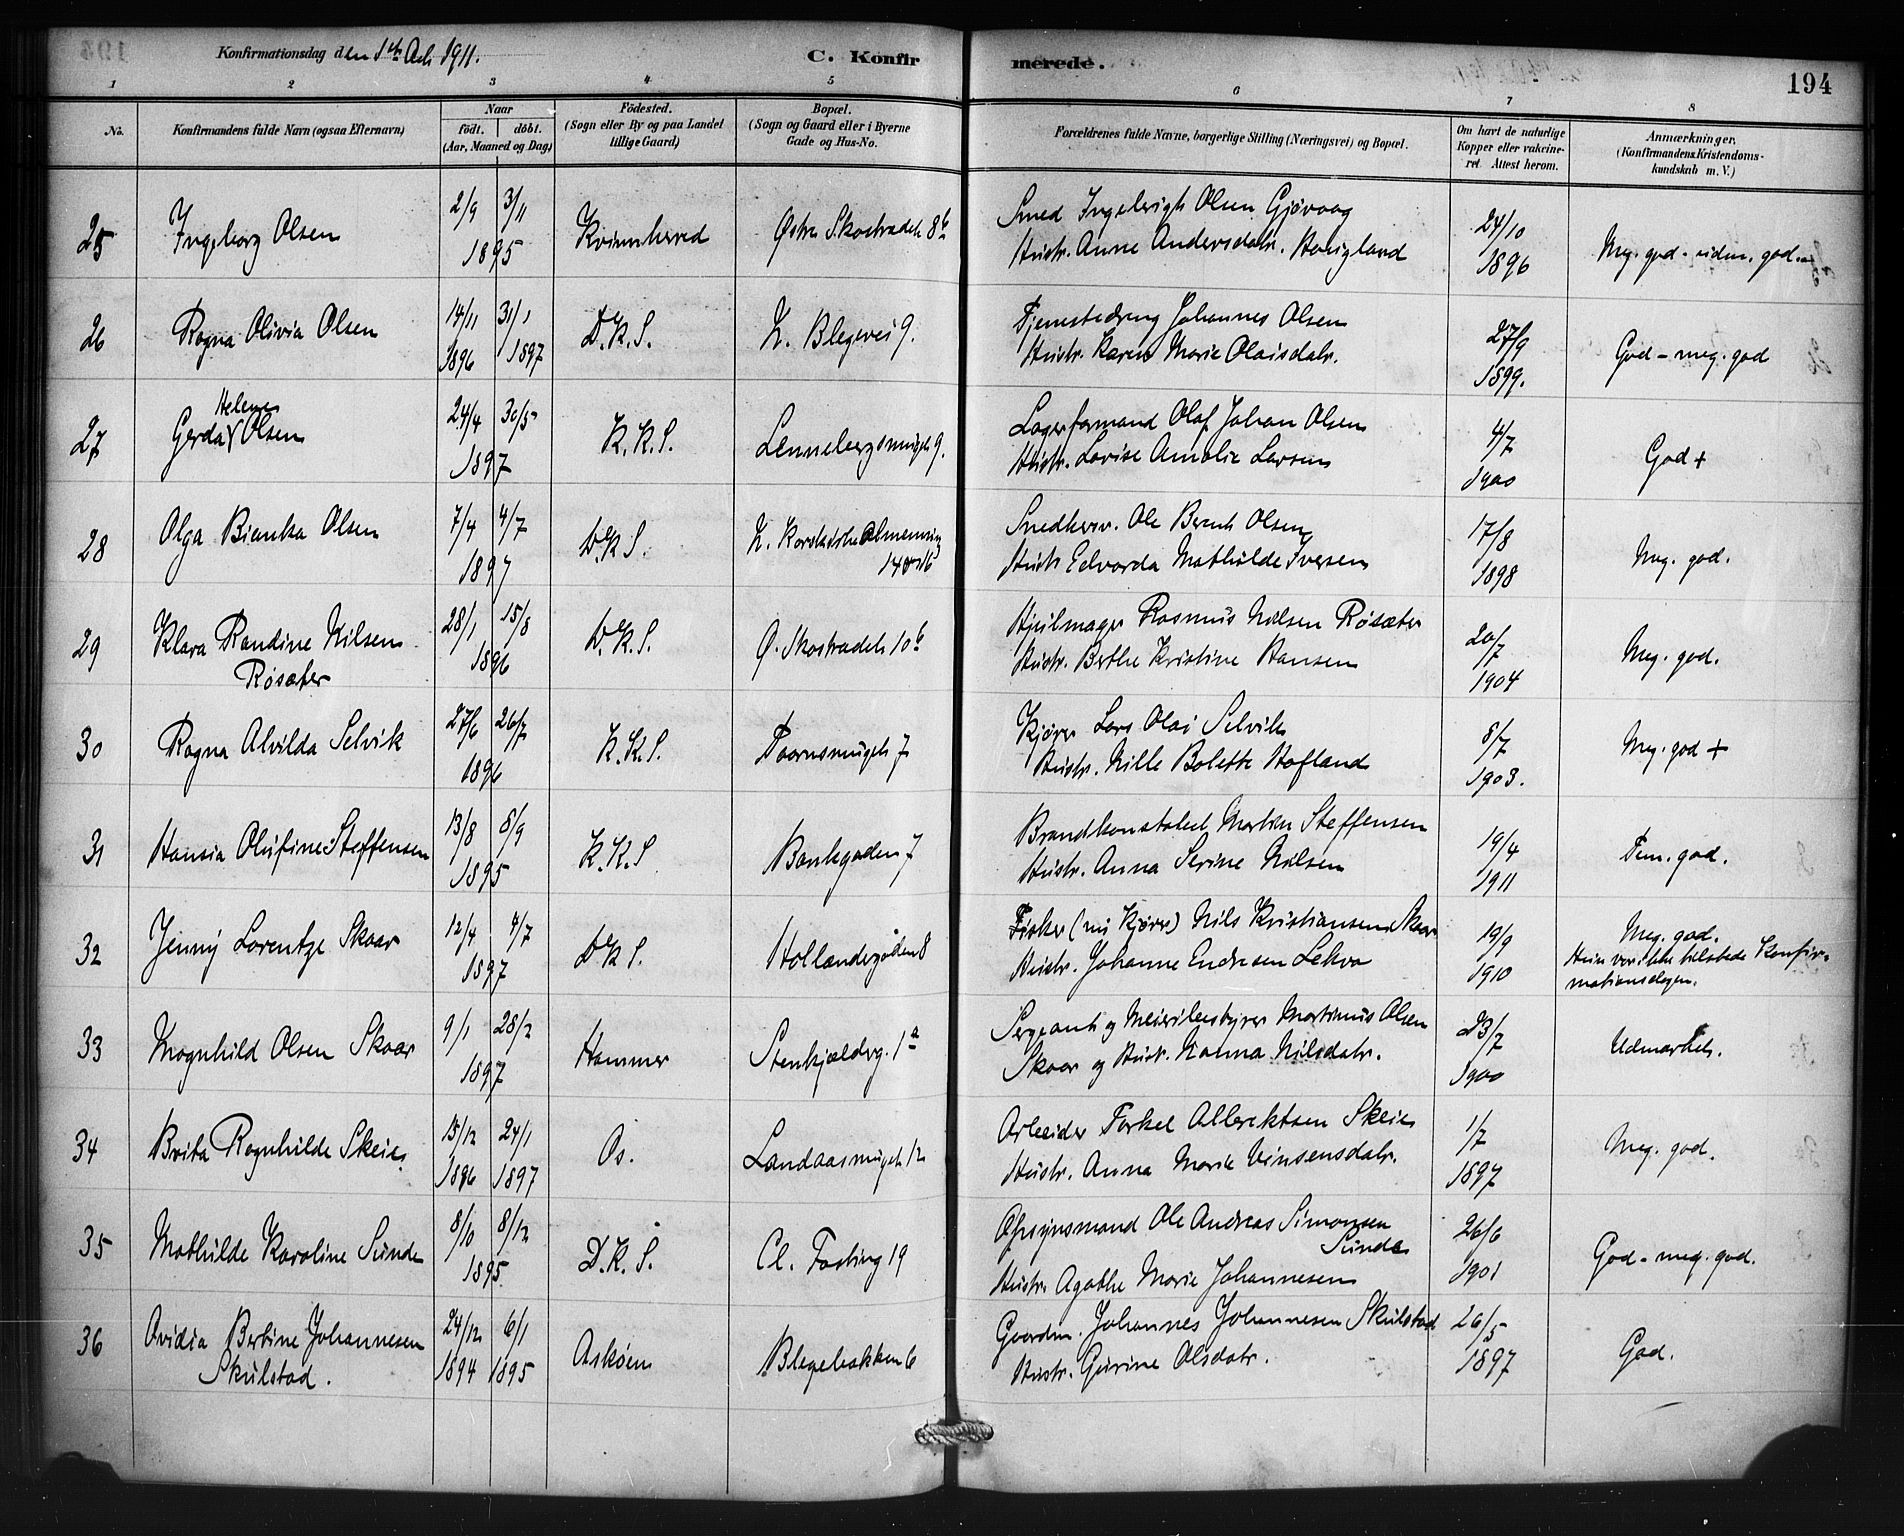 Konfirmationsdag den 1ste Oct. 1911.
C. Konfirmerede.
194
1 2 3 4 5 6 7 8
No.
Konfirmandens fulde Navn (ogsaa Efternavn)
Naar
födt. döbt.
(Aar, Maaned og Dag)
Födested.
(Sogn eller By og paa Landet
tillige Gaard)
Bopæl.
(Sogn og Gaard eller i Byerne
Gade og Hus-No.
Forældrenes fulde Navne, borgerlige Stilling (Næringsvei) og Bopæl.
Om havt de naturlige
Kopper eller vakcine-
ret. Attest herom.
Anmærkninger.
(Konfirmandens Kristendoms-
kundskab m. V.)
25 Ingeborg Olsen 2/9 3/11 1895 Kvinnherred Østre Skostrædet 8b
Smed Ingebrigt Olsen Gjøvaag
Hustr. Anne Andersdatr. Haugland
24/10 1896 Meg. god - udm. god.
26 Ragna Olivia Olsen 14/11 1896 31/1 1897 D.K.S. N. Blegevei 9.
Tjenestedreng Johannes Olsen
Hustr. Karen Marie Olaisdatr.
27/9 1899. God - meg. god
27 Gerda Helene Olsen 24/4 30/5 1897 K.K.S. Lennebergsmuget 9.
Lagerformand Olaf Johan Olsen
Hustr. Lovise Amalie Larsen
4/7 1900 God +
28 Olga Bianka Olsen 7/4 4/7 1897 D.K.S. N. Korskirke Almenning
14 16
Snedkersv. Ole Bernt Olsen
Hustr Edvarda Mathilde Iversen
17/8 1898 Meg. god.
29 Klara Randine Nilsen
Røsæter 28/1 15/8 1896 D.K.S. Ø. Skostrædet 10b
Hjulmager Rasmus Nilsen Røsæter
Hustr. Berthe Kristine Hansen
20/7 1904 Meg. god.
30 Ragna Alvilda Selvik 27/6 26/7 1896 K.K.S. Taarnsmuget 7
Kjører Lars Olai Selvik
Hustr. Nille Bolette Hofland
8/7 1903. Meg. god +
31 Hansia Olufine Steffensen 13/8 8/9 1895 K.K.S Bankgaden 7
Brandkonstabel Martin Steffensen
Hustr. Anna Serine Nilsen
19/4 1911 Tem. god.
32 Jenny Lorentze Skaar 12/4 4/7 1897 D.K.S. Hollændergaden 8
Fisker (nu Kjører) Nils Kristiansen Skaar
Hustr. Johanne Endresen Lekva
19/9 1910 Meg. god.
Hun var ikke tilstede Konfir-
mationsdagen.
33 Magnhild Olsen Skaar 9/1 28/2 1897 Hammer Stenkjælderg. 1a
Sergeant og Meieribestyrer Martinus Olsen
Skaar og Hustr. Hanna Nilsdatr.
23/7 1900 Udmærket.
34 Brita Ragnhilde Skeie 15/12 1896 24/1 1897 Os. Landaasmuget 12
Arbeider Torkel Allerektsen Skeie
Hustr. Anna Marie Vinsensdatr.
1/7 1897 Meg. god.
35 Mathilde Karoline Sunde 8/10 8/12 1895. D.K.S. Cl. Fasting 19
Opsynsmand Ole Andreas Simonsen
Sunde
Hustr. Agathe Marie Johannesen
26/6 1901 God - meg. god.
36 Ovidia Bertine Johannesen
Skulstad. 24/12 1894 6/1 1895 Askøen Blegebakken 6
Gaardm. Johannes Johannesen Skulstad
Hustr. Gurine Olsdatr.
26/5 1897 God.